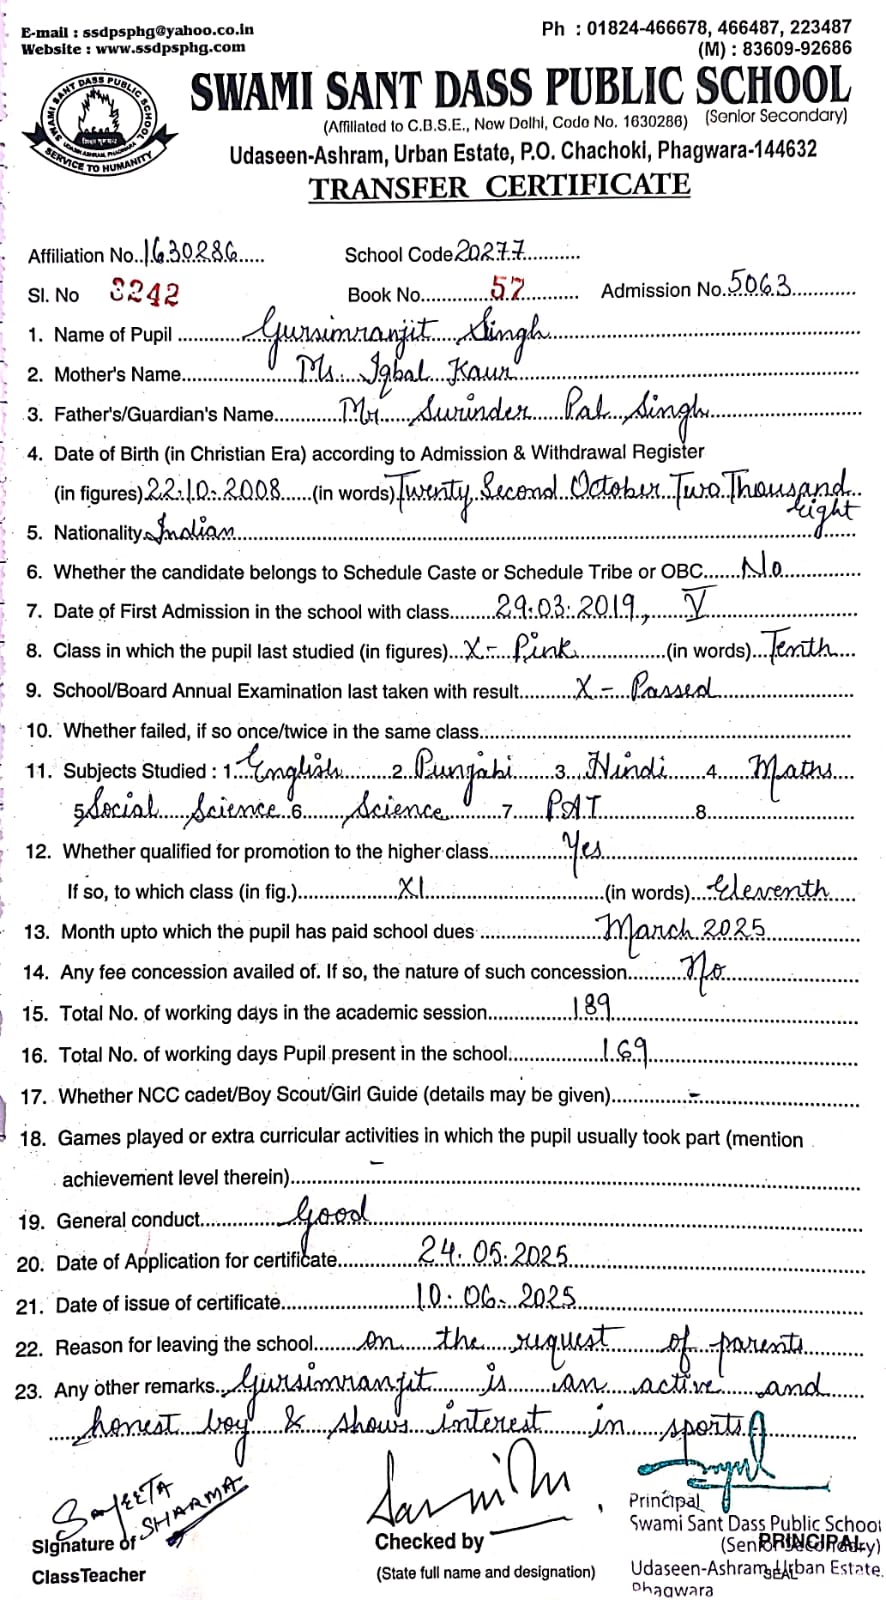 E-mail : ssdpsphg@yahoo.co.in
Website : www.ssdpsphg.com
Ph : 01824-466678, 466487, 223487
(M) : 83609-92686
SWAMI SANT DASS PUBLIC SCHOOL
SWAMI SANT DASS PUBLIC SCHOOL
SERVICE TO HUMANITY
(Affiliated to C.B.S.E., New Delhi, Code No. 1630286) (Senior Secondary)
Udaseen-Ashram, Urban Estate, P.O. Chachoki, Phagwara-144632
TRANSFER CERTIFICATE
Affiliation No. 1630286 School Code 20277
Sl. No 3242 Book No. 57 Admission No. 5063
1. Name of Pupil Gursimranjit Singh
2. Mother's Name Ms. Iqbal Kaur
3. Father's/Guardian's Name Mr Surinder Pal Singh
4. Date of Birth (in Christian Era) according to Admission & Withdrawal Register
(in figures) 22.10.2008 (in words) Twenty Second October Two Thousand
Eight
5. Nationality Indian
6. Whether the candidate belongs to Schedule Caste or Schedule Tribe or OBC No
7. Date of First Admission in the school with class 29.03.2019, V
8. Class in which the pupil last studied (in figures) X - Pink (in words) Tenth
9. School/Board Annual Examination last taken with result X - Passed
10. Whether failed, if so once/twice in the same class
11. Subjects Studied : 1. English 2. Punjabi 3. Hindi 4. Maths
5. Social Science 6. Science 7. PAT 8.
12. Whether qualified for promotion to the higher class Yes
If so, to which class (in fig.) XI (in words) Eleventh
13. Month upto which the pupil has paid school dues March 2025
14. Any fee concession availed of. If so, the nature of such concession No
15. Total No. of working days in the academic session 189
16. Total No. of working days Pupil present in the school 169
17. Whether NCC cadet/Boy Scout/Girl Guide (details may be given) -
18. Games played or extra curricular activities in which the pupil usually took part (mention
achievement level therein) -
19. General conduct Good
20. Date of Application for certificate 24.05.2025
21. Date of issue of certificate 10.06.2025
22. Reason for leaving the school on the request of parents
23. Any other remarks Gursimranjit is an active and
honest boy & shows interest in sports
SHARMA
Signature of
ClassTeacher
Checked by
(State full name and designation)
Principal
Swami Sant Dass Public School
(Senior Secondary)
PRINCIPAL
Udaseen-Ashram, Urban Estate.
SEAL
Phagwara